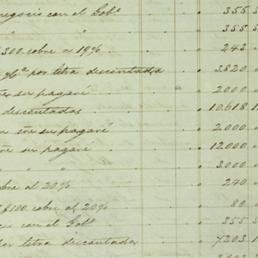 negocio con el Gob.º " 355
" 355
$300 cobre al 19% " 243
por letra descontada " 3820
su pagaré " 2000
descontadas " 10.618
su pagaré " 2.000
su pagaré " 12000
" 3.000
al 20% " 240
$100 cobre al 20% " 80
con el Gob.º " 355
por letra descontada " 7203